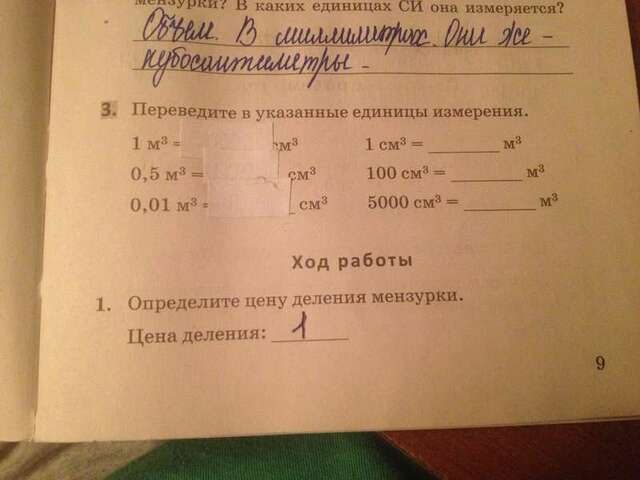 мензурки? В каких единицах СИ она измеряется?
Объём. В миллилитрах или же -
кубосантиметры -
3. Переведите в указанные единицы измерения.
1 м³ = см³ 1 см³ = ______ м³
0,5 м³ = см³ 100 см³ = ______ м³
0,01 м³ = см³ 5000 см³ = ______ м³
Ход работы
1. Определите цену деления мензурки.
Цена деления: 1
9